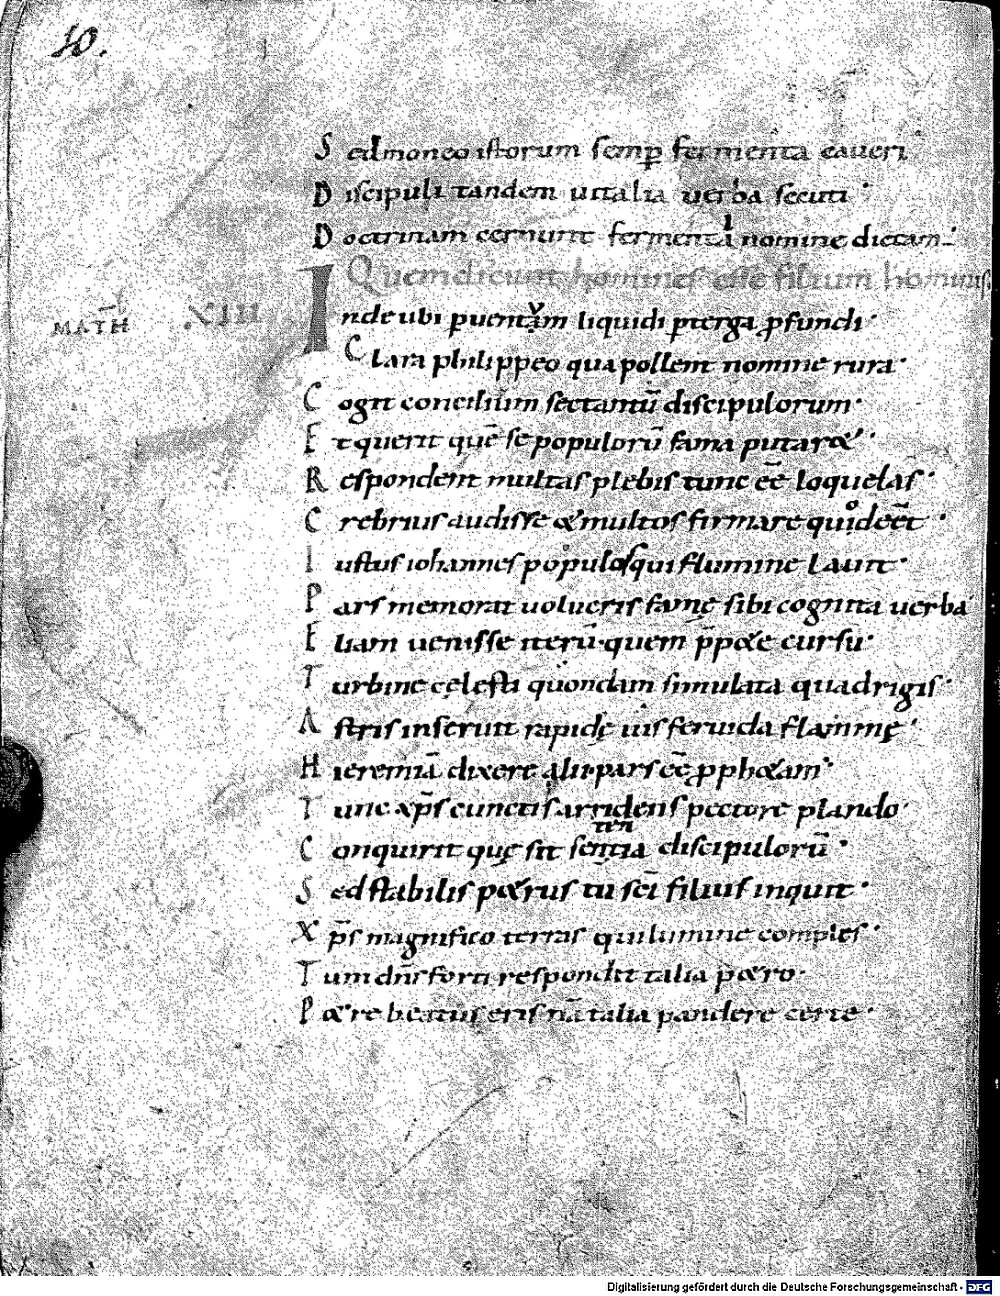 10.
S ed moneo istorum semꝑ fermenta caueri
D iscipuli tandem ut talia uerba secuti·
D octrinam cernunt fermenti nomine dictam·
Quem dicunt homines esse filium hominis
MATH XIII I nde ubi puentum liquidi pterga ꝓfundi·
C lara philippeo qua pollent nomine rura·
C ogit concilium sectantū discipulorum·
E t querit quē se populorū fama putaret·
R espondent multas plebis tunc eē loquelas·
C rebrius audisse & multos firmare quod eēt·
I ustus iohannes populos qui flumine lauit·
P ars memorat uolucris famę sibi cognita uerba
E liam uenisse iterū·quem p̄p&e cursu·
T urbine cęlesti quondam simulata quadrigis·
A stris inseruit rapidę uis feruida flammę·
H ieremiā dixere alii·pars eē ꝓph&am·
T unc xp̄s cunctis arridens pectore plando·
C onquirit quę sit sententia discipulorū·
S ed stabilis p&rus tu sc̄i filius inquit·
X p̄s magnifico terras qui lumine comples·
T um dn̄s forti respondit talia p&ro·
P &re beatus eris nā talia pandere certe·
Digitalisierung gefördert durch die Deutsche Forschungsgemeinschaft - DFG